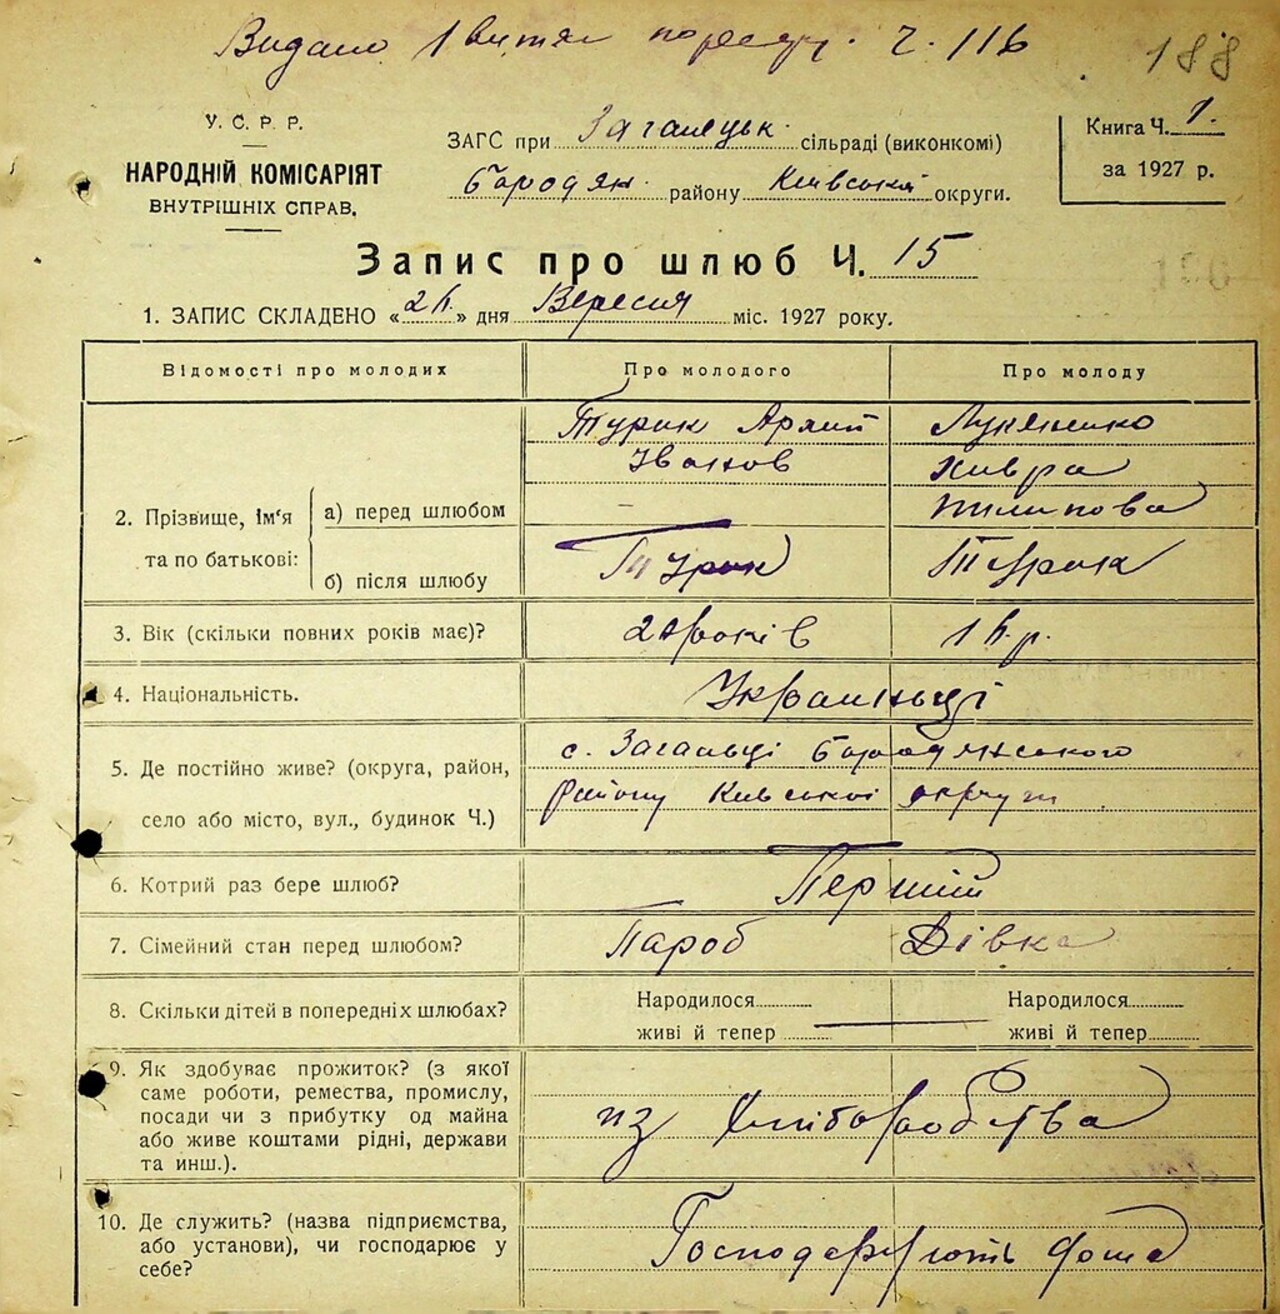 Видано 1 витяг по реєстру. Ч. 116
188
У. С. Р. Р.
НАРОДНІЙ КОМІСАРІЯТ
ВНУТРІШНІХ СПРАВ.
ЗАГС при Загалецьк. сільраді (виконкомі)
Бородян. району Київської округи.
Книга Ч. 1.
за 1927 р.
Запис про шлюб Ч. 15
1. ЗАПИС СКЛАДЕНО « » дня Вересня міс. 1927 року.
Відомості про молодих Про молодого Про молоду
2. Прізвище, ім‘я та по батькові:
а) перед шлюбом
Турик
Іванов
Лукяненко
Хивра
Пилипова
б) після шлюбу
Турик Турик
3. Вік (скільки повних років має)? років р.
4. Національність. Україньці
5. Де постійно живе? (округа, район,
село або місто, вул., будинок Ч.)
с. Загальці Бородянського
району Київської округи
6. Котрий раз бере шлюб? Перший
7. Сімейний стан перед шлюбом? Пароб Дівка
8. Скільки дітей в попередніх шлюбах?
Народилося Народилося
живі й тепер живі й тепер
9. Як здобуває прожиток? (з якої
саме роботи, ремества, промислу,
посади чи з прибутку од майна
або живе коштами рідні, держави
та инш.).
из хліборобства
10. Де служить? (назва підприємства,
або установи), чи господарює у
себе?
Господарюють дома